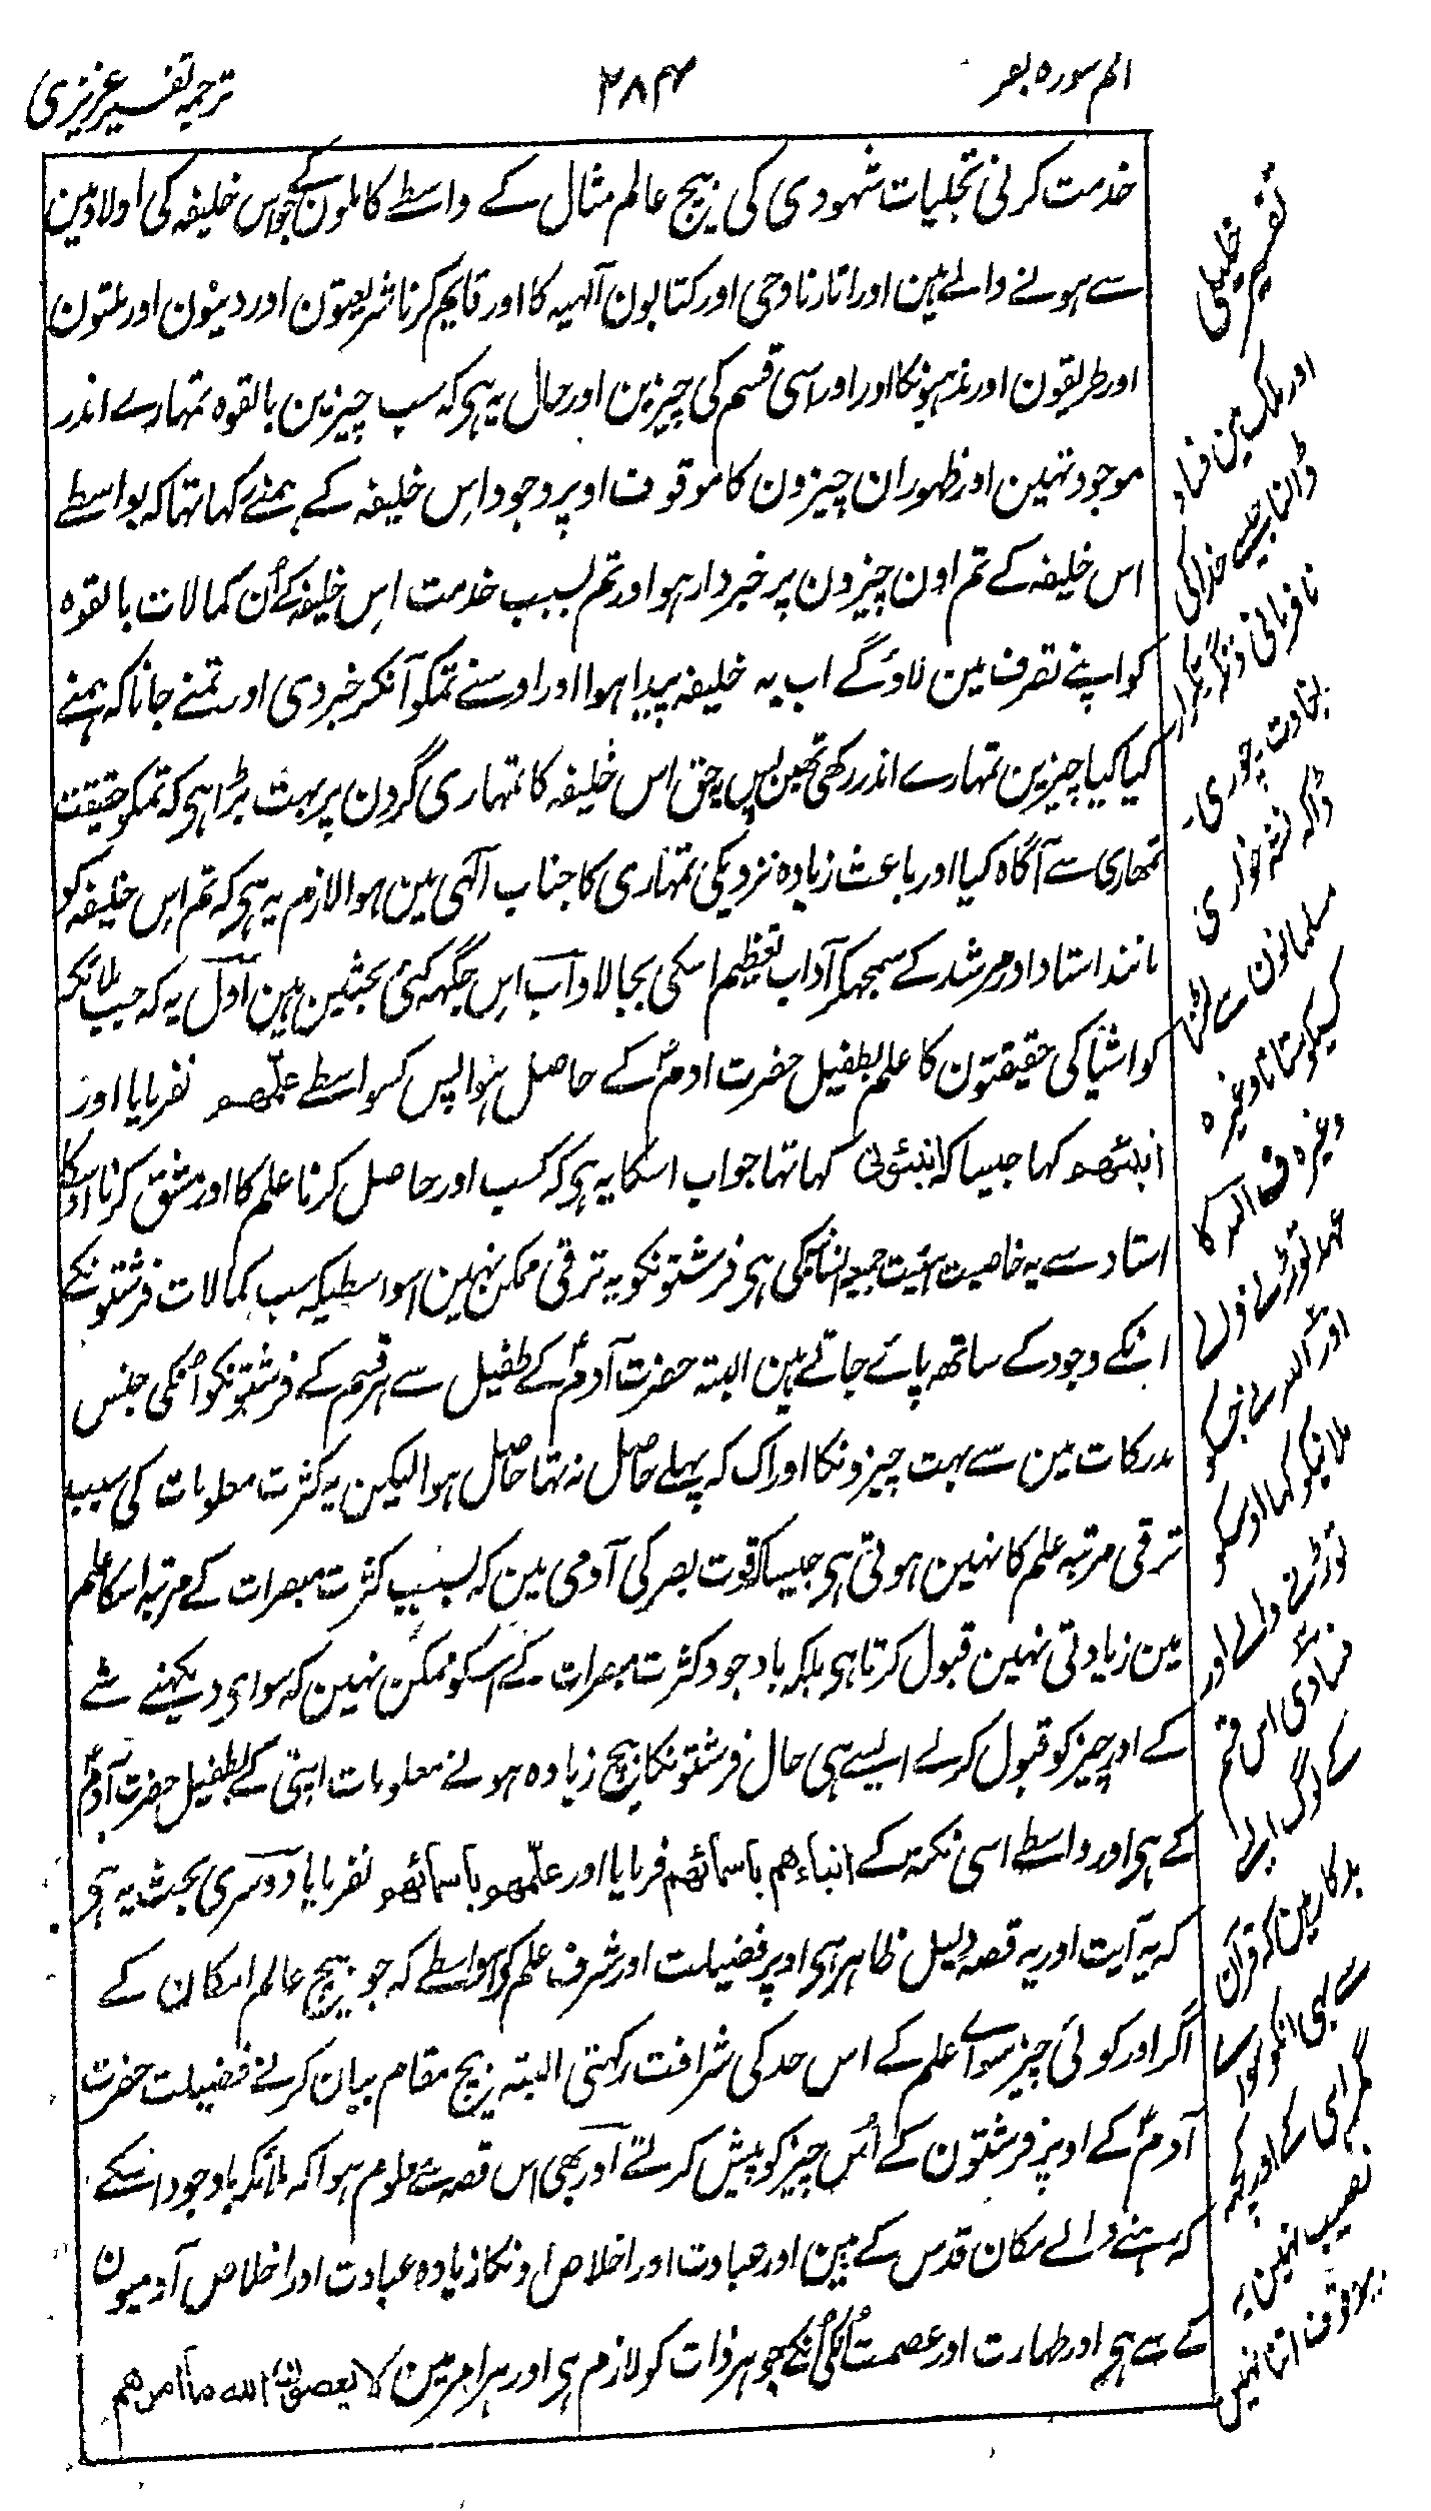 الم سورہ بقر
۲۸۴
ترجمہ تفسیر عزیزی
خدمت کرنی تجلیات شہودی کی بیچ عالم مثال کے واسطے کاملون کے جو اس خلیفہ کی اولاد مین
سے ہونے والے ہین اور اتارنا وحی اور کتابون آلہیہ کا اور قایم کرنا شریعتون اور دینون اور ملتون
اور طریقون اور مذہبونکا اور اور اسی قسم کی چیزین اور حال یہ ہی کہ سب چیزین بالقوہ تمہارے اندر
موجود تہین اور ظہور ان چیزون کا موقوف اوپر وجود اس خلیفہ کے ہمنے کہا تہا کہ بواسطے
اس خلیفہ کے تم اون چیزون پر خبردار ہو اور تم بسبب خدمت اِس خلیفہ کے اُن کمالات بالقوہ
کو اپنے تصرف مین لاوٗگے اب یہ خلیفہ پیدا ہوا اور اوسنے تمکو آنکر خبر دی اور تمنے جانا کہ ہمنے
کیا کیا چیزین تمہارے اندر رکھی تھین پس یہ حق اس خلیفہ کا تمہاری گردن پر بہت بڑا ہی کہ تمکو حقیقت
تمھاری سے آگاہ کیا اور باعث زیادہ نزدیکی تمہاری کا جناب آلہی مین ہوا لازم یہ ہی کہ تم اِس خلیفہ کو
مانند استاد اور مرشد کے سمجھکر آداب تعظیم اسکی بجا لاو اب اِس جگہہ کئی بحثین ہین اول یہ کہ جب ملائکہ
کو اشیا کی حقیقتون کا علم بطفیل حضرت ادمؑ کے حاصل ہوا پس کسواسطے علّمھم نفرمایا اور
انبئھم کہا جیسا کہ انبئونی کہا تہا جواب اسکا یہ ہی کہ کسب اور حاصل کرنا علم کا اور مشق کرنا اوسکا
استاد سے یہ خاصیت ہئیت جمیعہ انسانیکی ہی فرشتونکو یہ ترقی ممکن نہین اسواسطیکہ سب کمالات فرشتونکے
انکے وجود کے ساتھ پائے جاتے ہین البتہ حضرت آدمؑ کے طفیل سے ہر قسم کے فرشتونکو اُنکی جنس
مدرکات مین سے بہت چیزونکا ادراک کہ پہلے حاصل نہ تہا حاصل ہوا لیکن یہ کثرت معلومات کی سبب
ترقی مرتبہ علم کا نہین ہوتی ہی جیسا کہ قوت بصر کی آدمی مین کہ بسبب کثرت مبصرات کے مرتبہ اسکا علم
مین زیادتی نہین قبول کرتا ہی بلکہ باوجود کثرت مبصرات کے اسکو ممکن نہین کہ سوای دیکہنے شے
کے اور چیز کو قبول کرلے ایسے ہی حال فرشتونکا بیچ زیادہ ہونے معلومات اپنی کے بطفیل حضرت آدمؑ
کے ہی اور واسطے اسی نکتہ کے انباءھم باسمائھم فرمایا اور علّمھم باسمائھم نفرمایا دوسری بحث یہ ہی
کہ یہ آیت اور یہ قصہ دلیل ظاہر ہی اوپر فضیلت اور شرف علم کو اسواسطے کہ جو بیچ عالم امکان کے
اگر اور کوئی چیز سوائے علم کے اس حد کی شرافت رکہتی البتہ بیچ مقام بیان کرنے فضیلت حضرت
آدمؑ کے اوپر فرشتون کے اُس چیز کو پیش کرتے اور بھی اس قصہ سے معلوم ہوا کہ ملائکہ باوجود اسکے
کہ رہنے والے مکان قدس کے ہین اور عبادت اور اخلاص اونکا زیادہ عبادت اور اخلاص آدمیون
کے سے ہی اور طہارت اور عصمت اُنکی اُنکے جوہر ذات کو لازم ہی اور ہر امر مین لا یعصون الله ما امرھم
تفسیر خلیلی
اور ملک مین فساد
ڈالنا جیسے خدا کی
نافرمانی
بغاوت چوری
ڈاکہ
مسلمانون سے لڑنا
کسیکو ستانا وغیرہ
وغیرہ ف اللہ کا
عہد توڑنے
اور اللہ نے جسکو
ملانیکو کہا اوسکو
توڑنے والے اور
فسادی اس قسم
کے لوگ
بدکار ہین کہ قرآن
سے بھی انکو سوا
گمراہی کے اور کچھ
نصیب نہین یہ
بیوقوف اتنا نہین